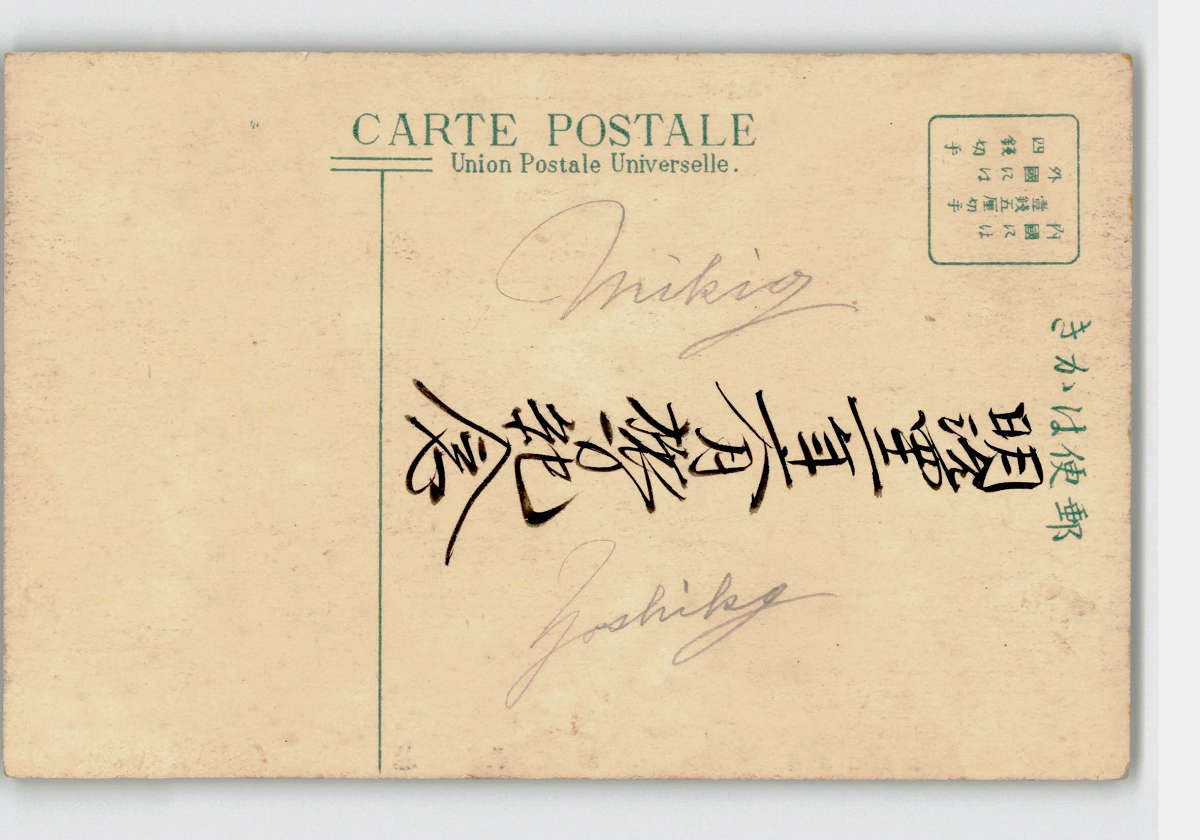 CARTE POSTALE
Union Postale Universelle.
内國には
壹錢五厘切手
外國には
四錢切手
郵便はかき
Mikio
明治四十一年六月 紀念
Yoshiko